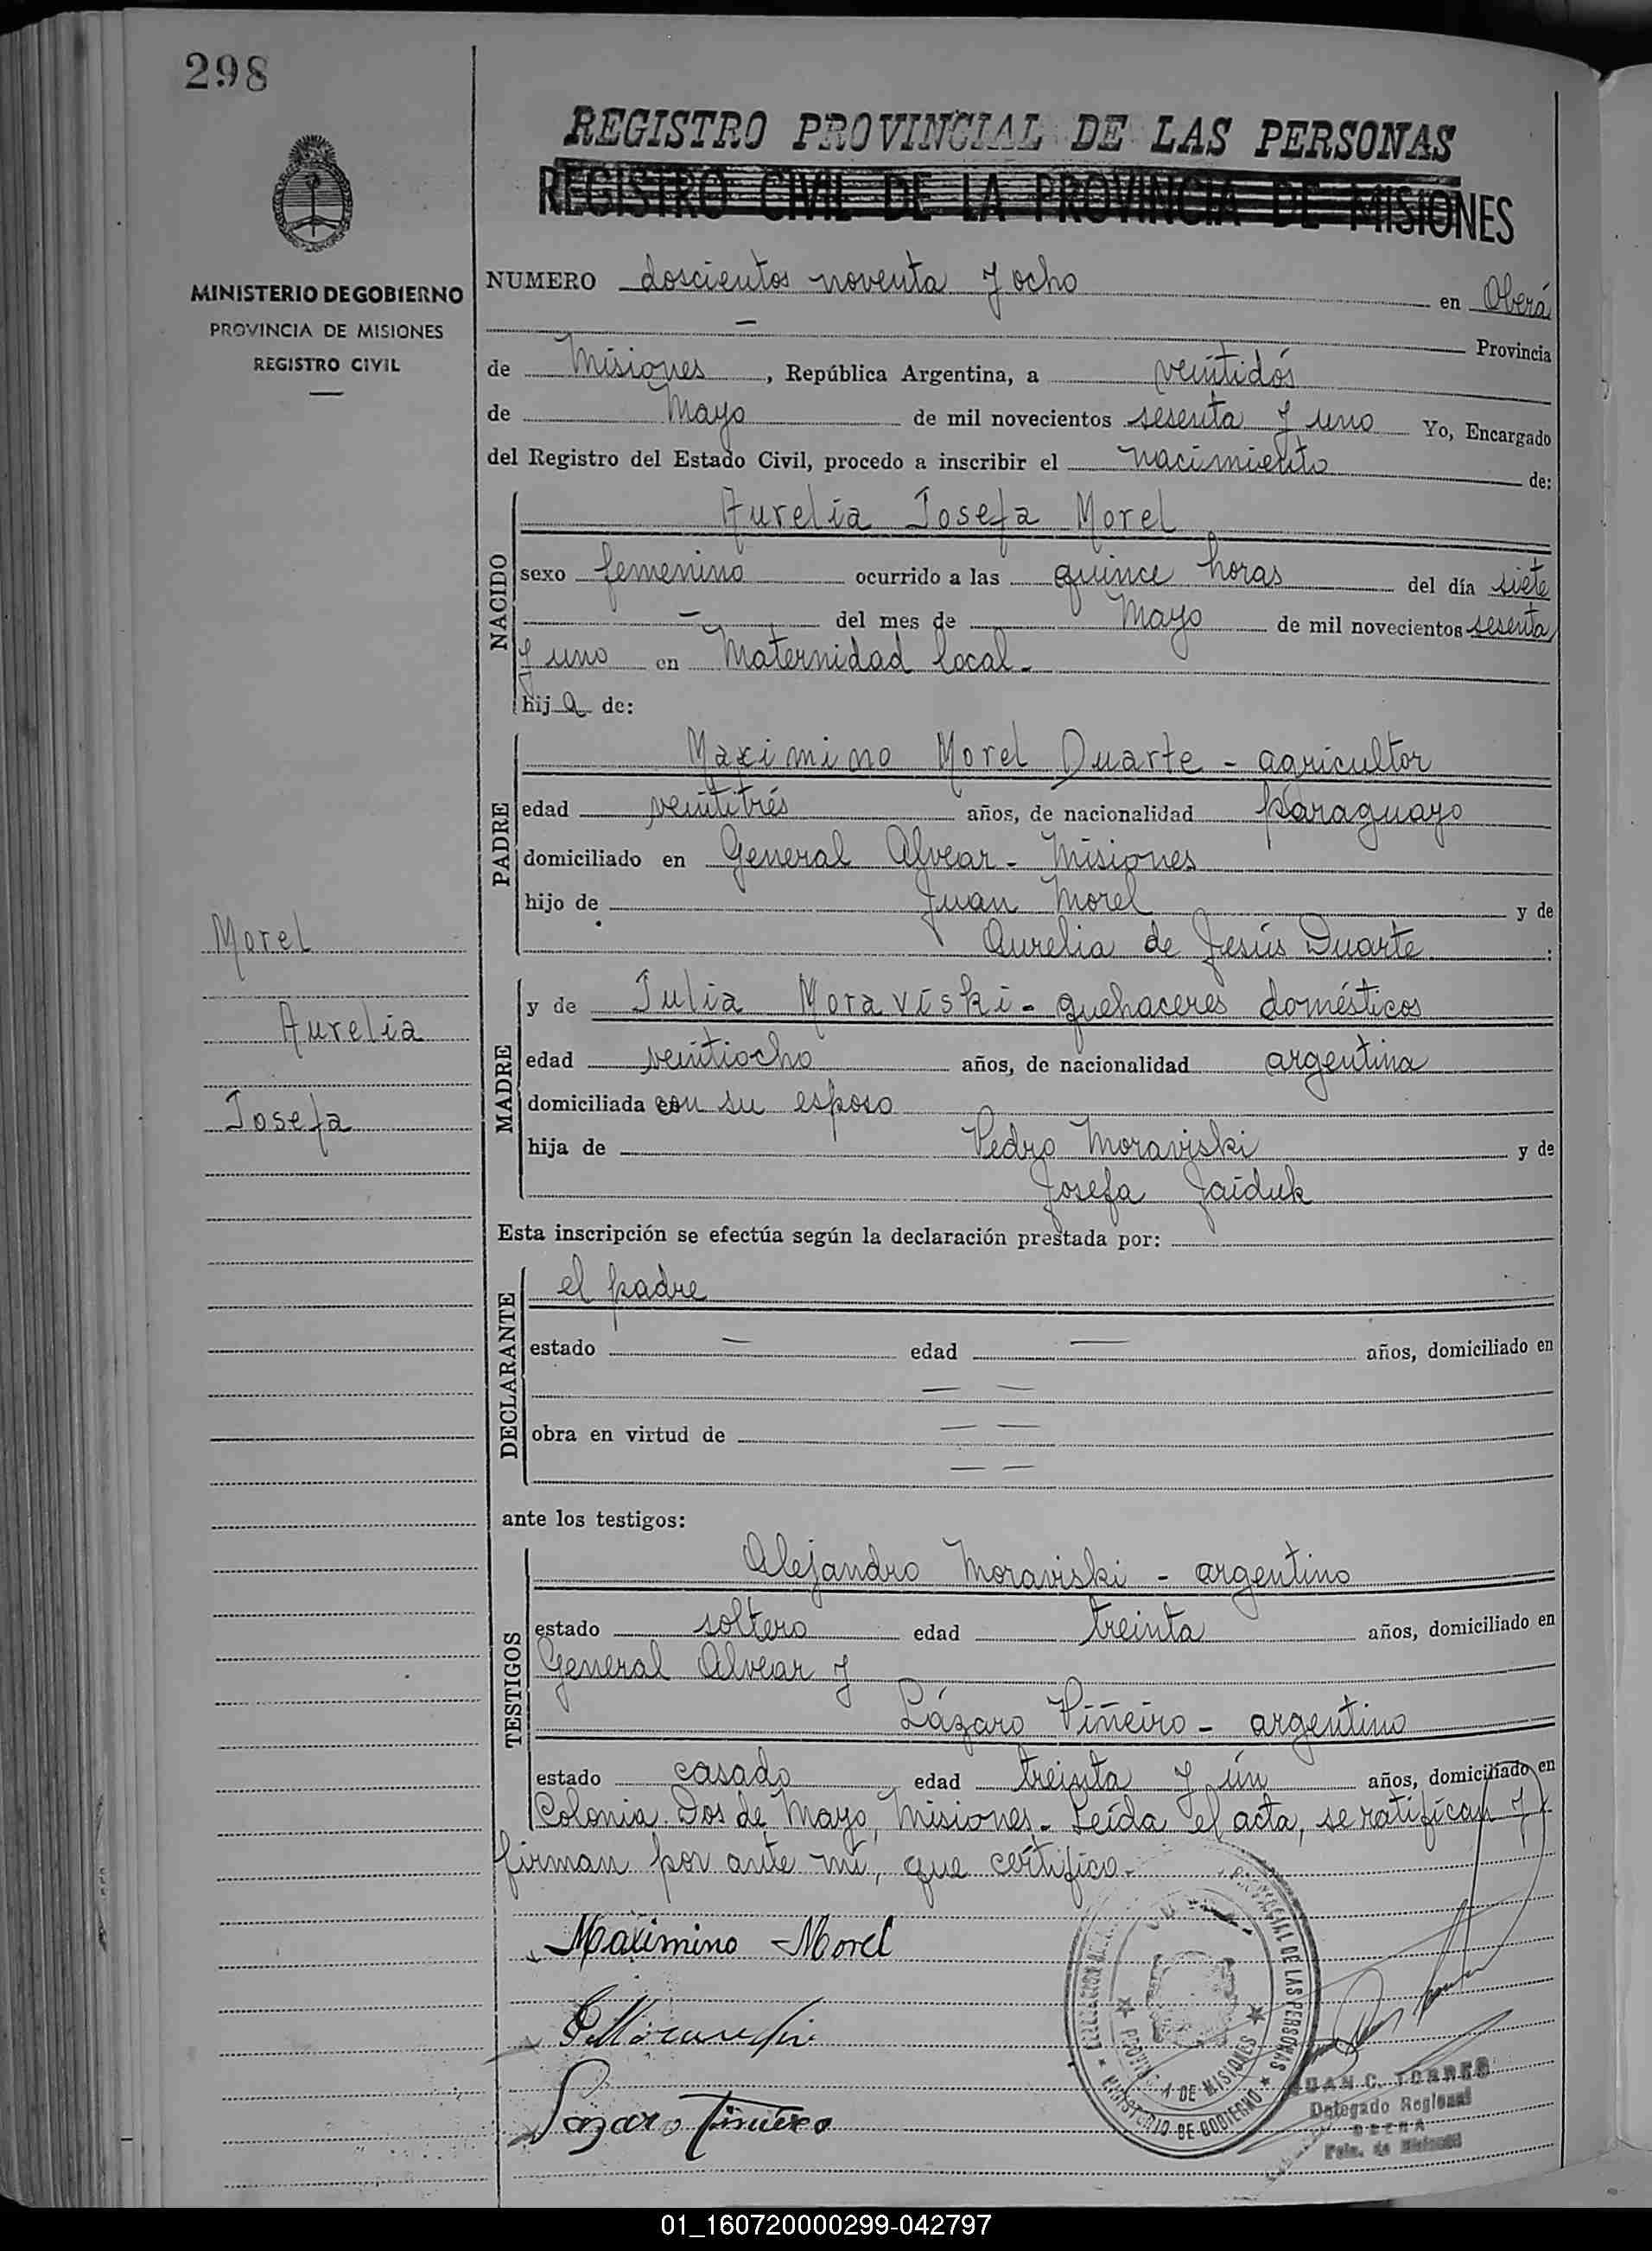 298
REGISTRO PROVINCIAL DE LAS PERSONAS
REGISTRO CIVIL DE LA PROVINCIA DE MISIONES
MINISTERIO DE GOBIERNO
PROVINCIA DE MISIONES
REGISTRO CIVIL
NUMERO doscientos noventa y ocho en Oberá
— Provincia
de Misiones, República Argentina, a veintidós
de Mayo de mil novecientos sesenta y uno Yo, Encargado
del Registro del Estado Civil, procedo a inscribir el nacimiento de:
NACIDO
Aurelia Josefa Morel
sexo femenino ocurrido a las quince horas del día siete
— del mes de Mayo de mil novecientos sesenta
y uno en Maternidad local.
hija de:
PADRE
Maximino Morel Duarte - agricultor
edad veintitrés años, de nacionalidad paraguayo
domiciliado en General Alvear - Misiones
hijo de Juan Morel y de
Aurelia de Jesús Duarte :
Morel
Aurelia
Josefa
MADRE
y de Julia Moraviski - quehaceres domésticos
edad veintiocho años, de nacionalidad argentina
domiciliada con su esposo
hija de Pedro Moraviski y de
Josefa Jaiduk
Esta inscripción se efectúa según la declaración prestada por:
DECLARANTE
el padre
estado — edad — años, domiciliado en
— —
obra en virtud de — —
— —
ante los testigos:
TESTIGOS
Alejandro Moraviski - argentino
estado soltero edad treinta años, domiciliado en
General Alvear y
Lázaro Piñeiro - argentino
estado casado edad treinta y ún años, domiciliado en
Colonia Dos de Mayo, Misiones. Leída el acta, se ratifican y
firman por ante mí, que certifico.
Maximino Morel
PROVINCIAL DE LAS PERSONAS
DE MISIONES
MINISTERIO DE GOBIERNO
JUAN C. TORRES
Delegado Regional
OBERA
Pcia. de Misiones
01_160720000299-042797